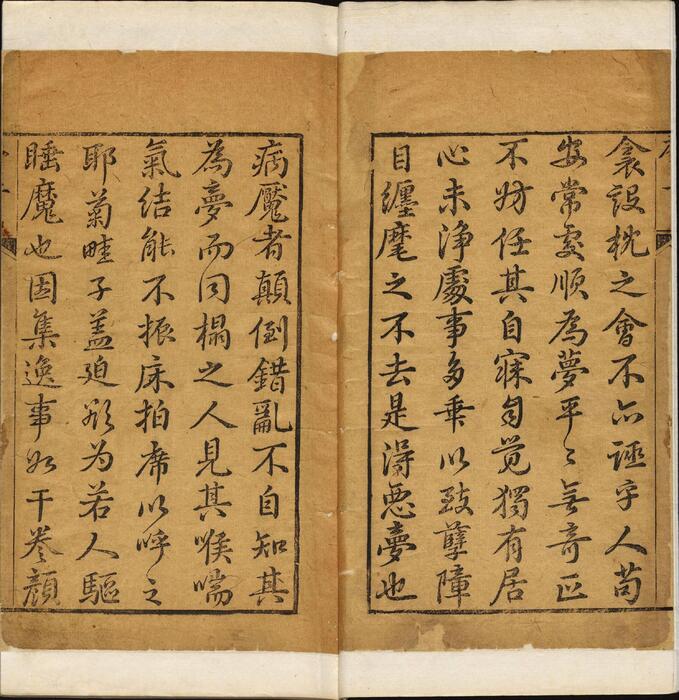 衾設枕之會不亦誣乎人苟
安常處順為夢平〻無奇正
不妨任其自寐自覺獨有居
心未淨處事多乖以致孽障
目纏麾之不去是得惡夢也
病魘者顛倒錯亂不自知其
為夢而同榻之人見其喉喘
氣結能不振床拍席以呼之
耶菊畦子蓋廹欲为若人驅
睡魔也因集逸事如干卷顏